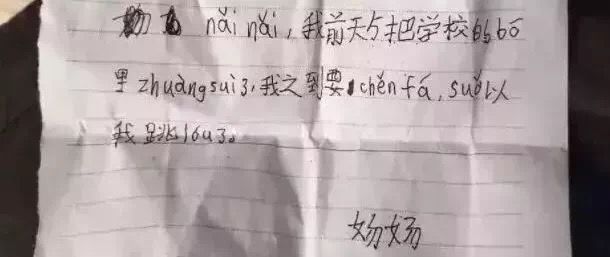 nǎi nǎi，我前天与把学校的bō
里zhuàngsuì了，我之到要chěn fá，suǒ以
我跳lóu了。